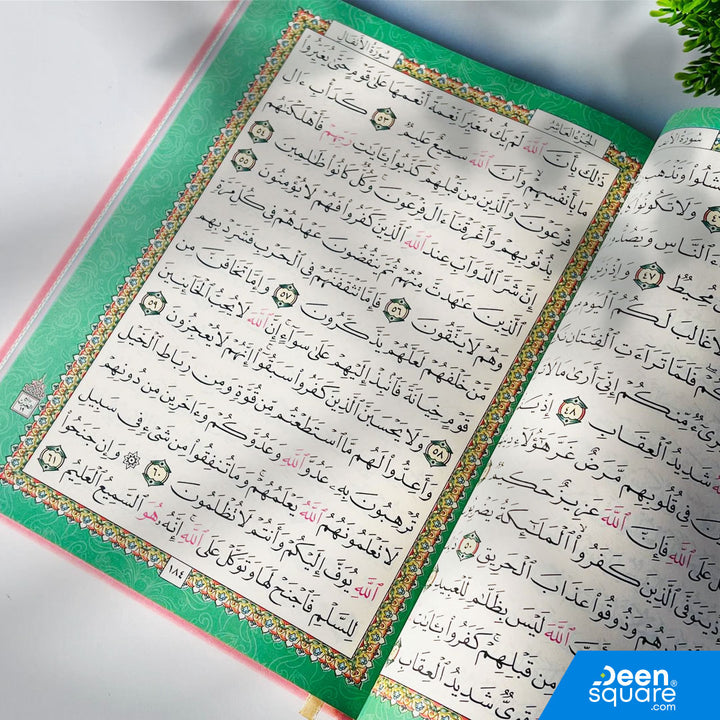 سُورَةُ الأَنفَالِ
الجُزْءُ العَاشِرُ
ذَٰلِكَ بِأَنَّ ٱللَّهَ لَمۡ يَكُ مُغَيِّرٗا نِّعۡمَةً أَنۡعَمَهَا عَلَىٰ قَوۡمٍ حَتَّىٰ يُغَيِّرُواْ
مَا بِأَنفُسِهِمۡ وَأَنَّ ٱللَّهَ سَمِيعٌ عَلِيمٞ ٥٣ كَدَأۡبِ ءَالِ
فِرۡعَوۡنَ وَٱلَّذِينَ مِن قَبۡلِهِمۡۚ كَذَّبُواْ بِـَٔايَٰتِ رَبِّهِمۡ فَأَهۡلَكۡنَٰهُم
بِذُنُوبِهِمۡ وَأَغۡرَقۡنَآ ءَالَ فِرۡعَوۡنَۚ وَكُلّٞ كَانُواْ ظَٰلِمِينَ ٥٤
إِنَّ شَرَّ ٱلدَّوَآبِّ عِندَ ٱللَّهِ ٱلَّذِينَ كَفَرُواْ فَهُمۡ لَا يُؤۡمِنُونَ ٥٥
ٱلَّذِينَ عَٰهَدتَّ مِنۡهُمۡ ثُمَّ يَنقُضُونَ عَهۡدَهُمۡ فِي كُلِّ مَرَّةٖ
وَهُمۡ لَا يَتَّقُونَ ٥٦ فَإِمَّا تَثۡقَفَنَّهُمۡ فِي ٱلۡحَرۡبِ فَشَرِّدۡ بِهِم
مَّنۡ خَلۡفَهُمۡ لَعَلَّهُمۡ يَذَّكَّرُونَ ٥٧ وَإِمَّا تَخَافَنَّ مِن
قَوۡمٍ خِيَانَةٗ فَٱنۢبِذۡ إِلَيۡهِمۡ عَلَىٰ سَوَآءٍۚ إِنَّ ٱللَّهَ لَا يُحِبُّ ٱلۡخَآئِنِينَ
٥٨ وَلَا يَحۡسَبَنَّ ٱلَّذِينَ كَفَرُواْ سَبَقُوٓاْۚ إِنَّهُمۡ لَا يُعۡجِزُونَ ٥٩
وَأَعِدُّواْ لَهُم مَّا ٱسۡتَطَعۡتُم مِّن قُوَّةٖ وَمِن رِّبَاطِ ٱلۡخَيۡلِ
تُرۡهِبُونَ بِهِۦ عَدُوَّ ٱللَّهِ وَعَدُوَّكُمۡ وَءَاخَرِينَ مِن دُونِهِمۡ
لَا تَعۡلَمُونَهُمُ ٱللَّهُ يَعۡلَمُهُمۡۚ وَمَا تُنفِقُواْ مِن شَيۡءٖ فِي سَبِيلِ
ٱللَّهِ يُوَفَّ إِلَيۡكُمۡ وَأَنتُمۡ لَا تُظۡلَمُونَ ٦٠ ۞ وَإِن جَنَحُواْ
لِلسَّلۡمِ فَٱجۡنَحۡ لَهَا وَتَوَكَّلۡ عَلَى ٱللَّهِۚ إِنَّهُۥ هُوَ ٱلسَّمِيعُ ٱلۡعَلِيمُ ٦١
١٨٤
سُورَةُ
وَلَا تَكُونُواْ
ٱلنَّاسِ
مُحِيطٞ ٤٧ وَإِذۡ
غَالِبَ لَكُمُ ٱلۡيَوۡمَ
فَلَمَّا تَرَآءَتِ ٱلۡفِئَتَانِ
مِّنكُمۡ إِنِّيٓ أَرَىٰ مَا لَا
شَدِيدُ ٱلۡعِقَابِ ٤٨ إِذۡ
فِي قُلُوبِهِم مَّرَضٌ غَرَّ هَٰٓؤُلَآءِ
عَلَى ٱللَّهِ فَإِنَّ ٱللَّهَ عَزِيزٌ حَكِيمٞ
ٱلَّذِينَ كَفَرُواْ ٱلۡمَلَٰٓئِكَةُ
وَذُوقُواْ عَذَابَ ٱلۡحَرِيقِ
ٱللَّهَ لَيۡسَ بِظَلَّٰمٖ لِّلۡعَبِيدِ
مِن قَبۡلِهِمۡۚ كَفَرُواْ
قَوِيّٞ شَدِيدُ ٱلۡعِقَابِ
Deen
square
.com